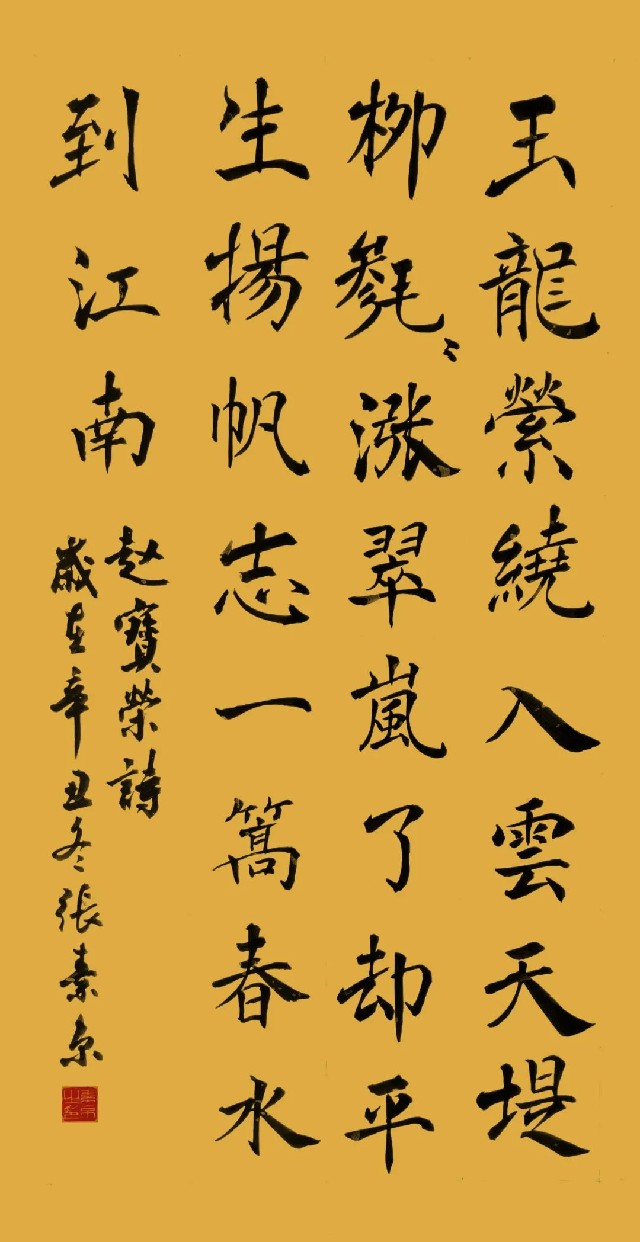 玉龍縈繞入雲天堤
柳毿〻涨翠嵐了却平
生揚帆志一篙春水
到江南
赵寶榮詩
歲在辛丑冬張素京